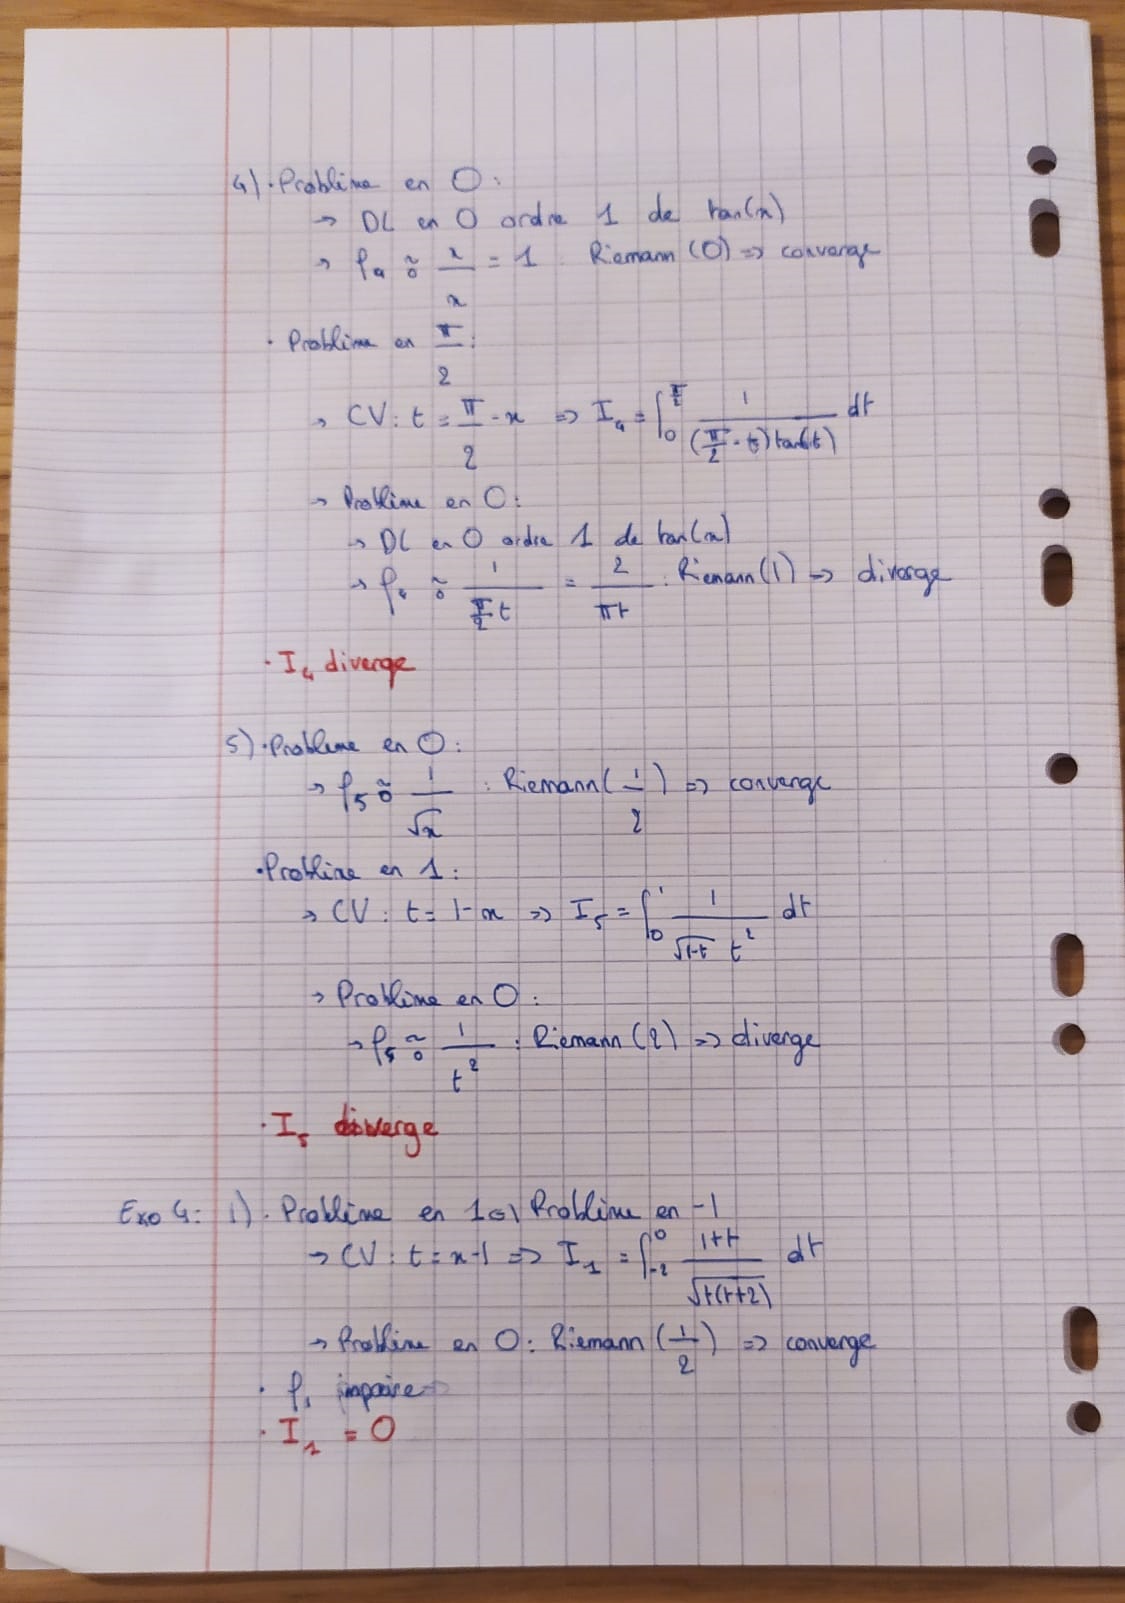 4) · Problème en 0 :
→ DL en 0 ordre 1 de tan(x)
→ f₄ ~₀ x/x = 1 : Riemann (0) => converge
· Problème en π/2 :
→ CV : t = π/2 - x => I₄ = ∫₀^(π/2) 1/((π/2 - t) tan(t)) dt
→ Problème en 0 :
→ DL en 0 ordre 1 de tan(x)
→ f₄ ~₀ 1/(π/2 t) = 2/(πt) : Riemann (1) => diverge
· I₄ diverge
5) · Problème en 0 :
→ f₅ ~₀ 1/√x : Riemann (1/2) => converge
· Problème en 1 :
→ CV : t = 1-x => I₅ = ∫₀¹ 1/(√(1-t) t²) dt
→ Problème en 0 :
→ f₅ ~₀ 1/t² : Riemann (2) => diverge
· I₅ diverge
Exo 4 : 1) · Problème en 1 <=> Problème en -1
→ CV : t = x-1 => I₁ = ∫₋₂⁰ (1+t)/√(t(t+2)) dt
→ Problème en 0 : Riemann (1/2) => converge
· f₁ impaire
· I₁ = 0